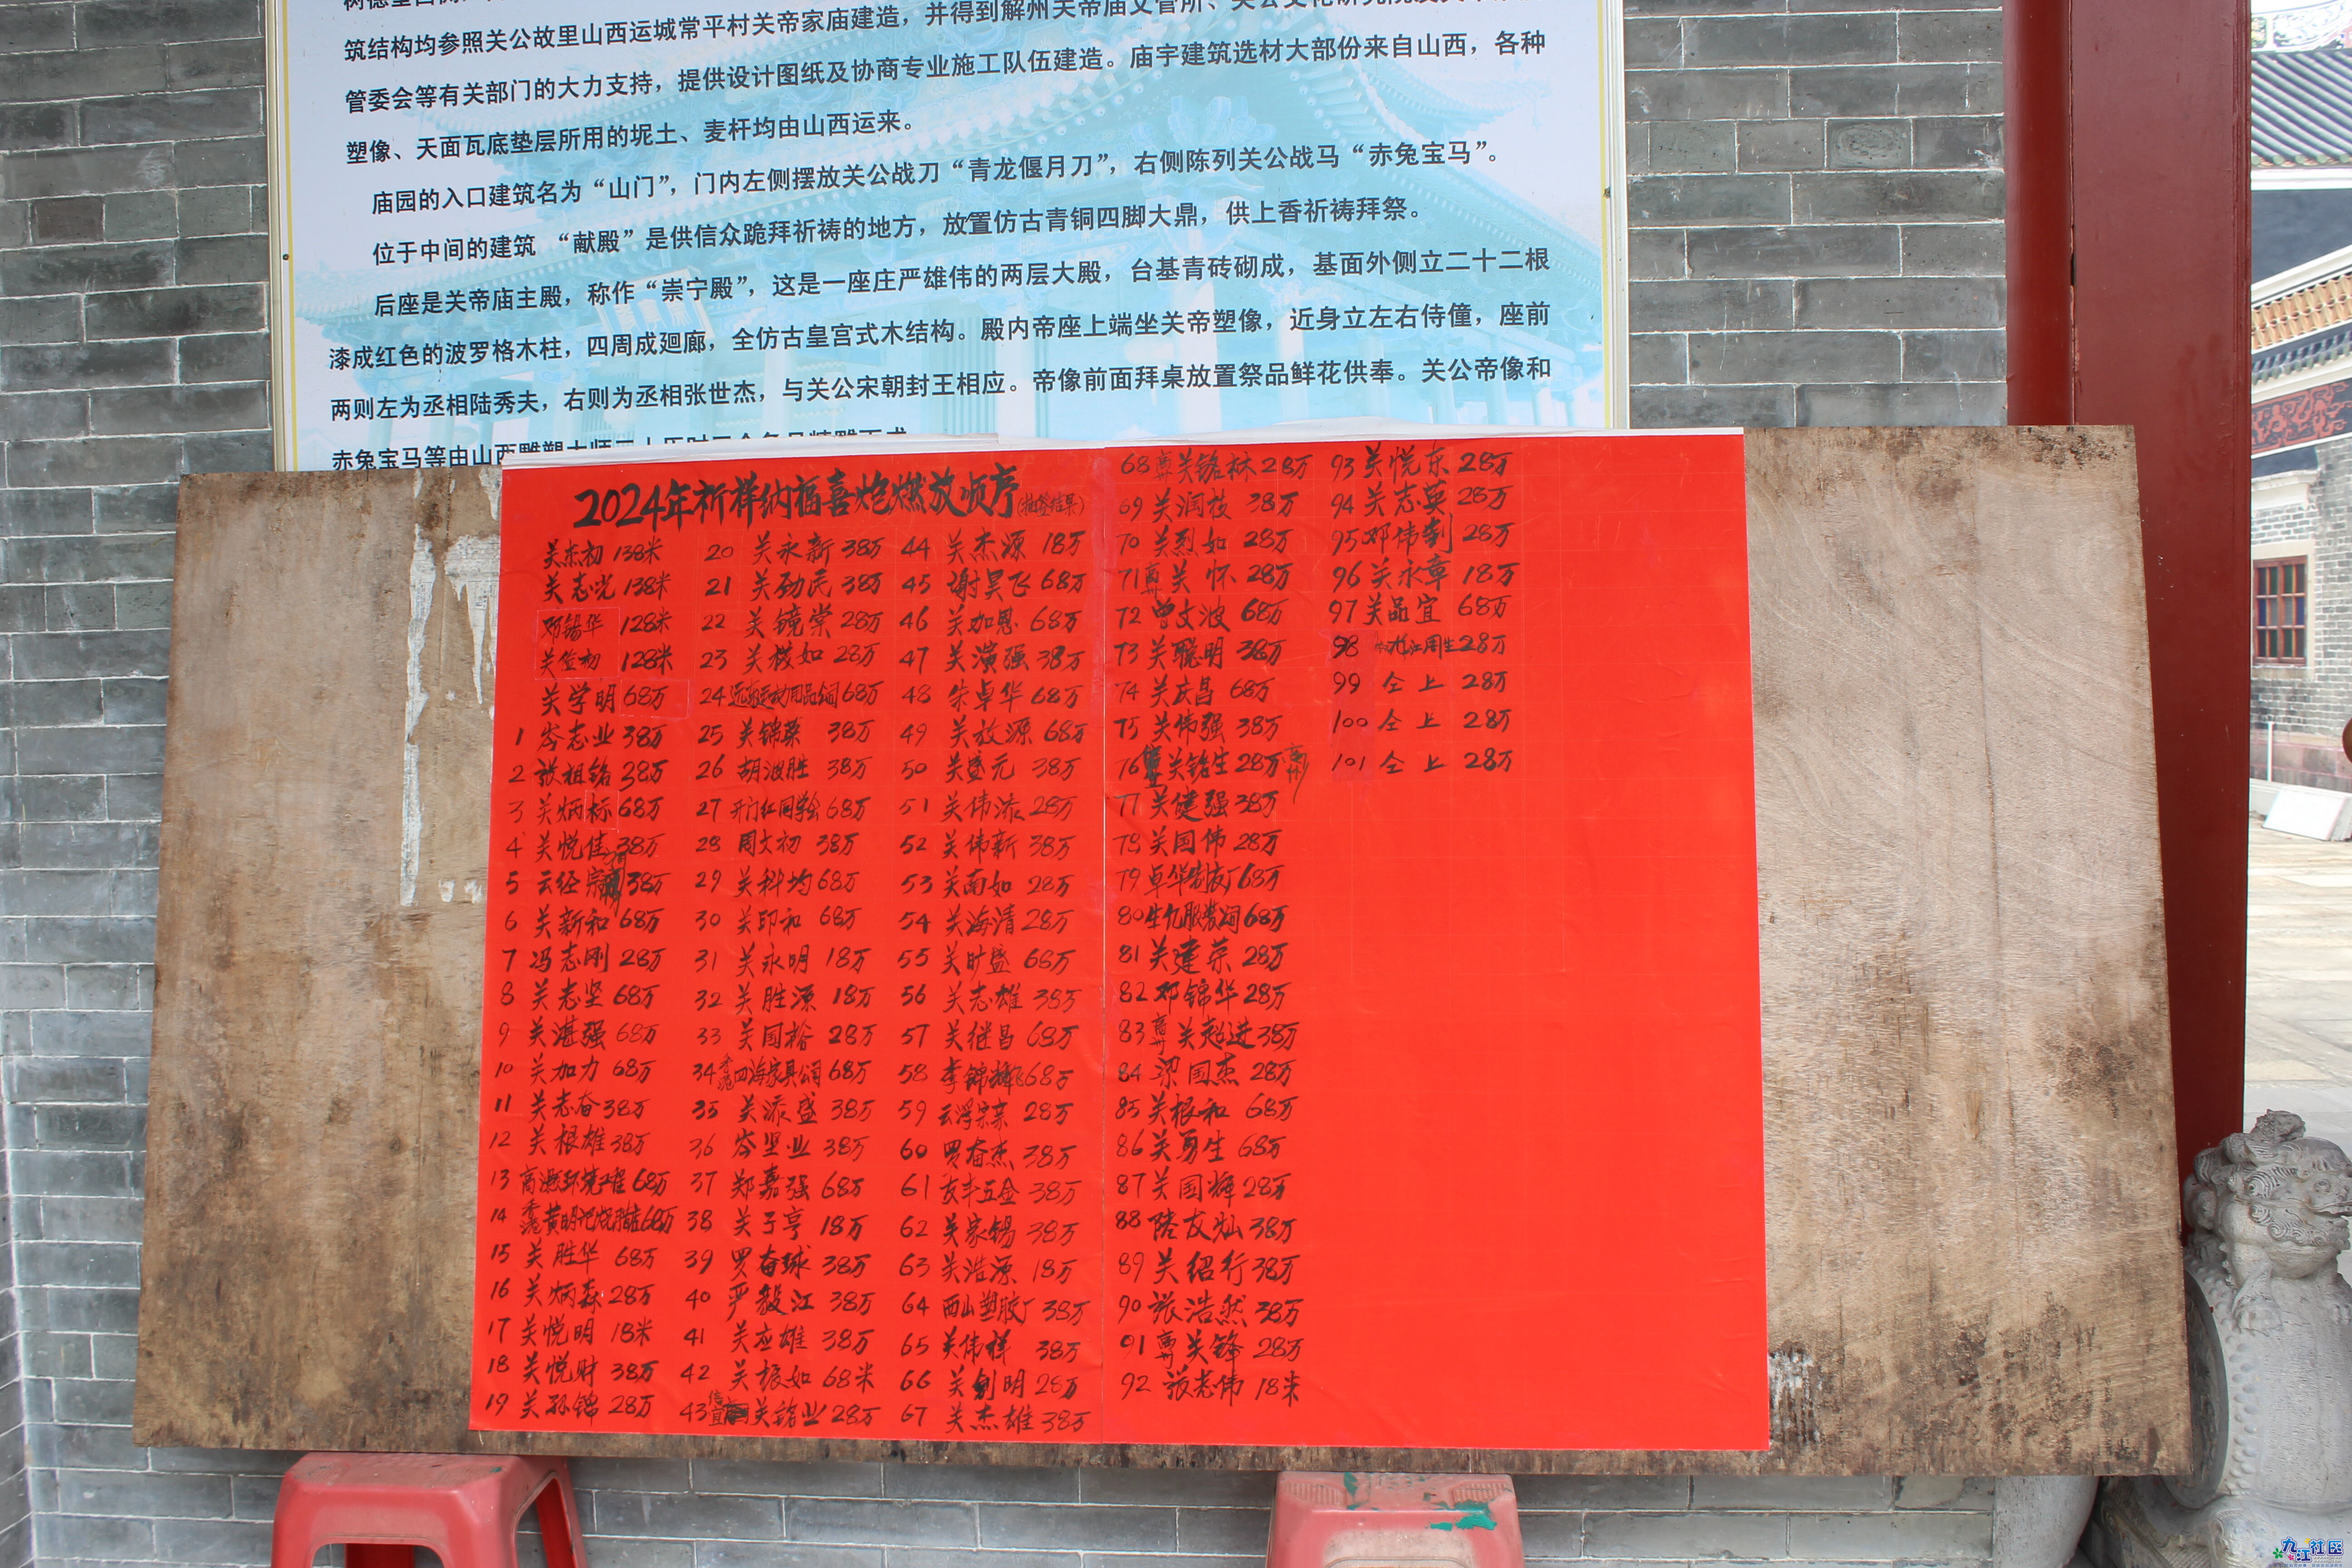 筑结构均参照关公故里山西运城常平村关帝家庙建造，并得到解州关帝庙文管所、关公文化研究院及
管委会等有关部门的大力支持，提供设计图纸及协商专业施工队伍建造。庙宇建筑选材大部份来自山西，各种
塑像、天面瓦底垫层所用的坭土、麦杆均由山西运来。
庙园的入口建筑名为“山门”，门内左侧摆放关公战刀“青龙偃月刀”，右侧陈列关公战马“赤兔宝马”。
位于中间的建筑 “献殿”是供信众跪拜祈祷的地方，放置仿古青铜四脚大鼎，供上香祈祷拜祭。
后座是关帝庙主殿，称作“崇宁殿”，这是一座庄严雄伟的两层大殿，台基青砖砌成，基面外侧立二十二根
漆成红色的波罗格木柱，四周成廻廊，全仿古皇宫式木结构。殿内帝座上端坐关帝塑像，近身立左右侍僮，座前
两则左为丞相陆秀夫，右则为丞相张世杰，与关公宋朝封王相应。帝像前面拜桌放置祭品鲜花供奉。关公帝像和
赤兔宝马等由山西雕塑大师
2024年祈祥纳福喜炮燃放顺序(抽签结果)
关东初 138米
关志光 138米
邓锡华 128米
关佐初 128米
关学明 68万
1 岑志业 38万
2 张祖铭 38万
3 关炳标 68万
4 关悦佳 38万
5 云经宗 38万
6 关新和 68万
7 冯志刚 28万
8 关志坚 68万
9 关湛强 68万
10 关加力 68万
11 关志奋 38万
12 关根雄 38万
13 高 环境工程 68万
14 香港黄明记烧腊店 68万
15 关胜华 68万
16 关炳森 28万
17 关悦明 18米
18 关悦财 38万
19 关孙锦 28万
20 关永新 38万
21 关劲民 38万
22 关镜棠 28万
23 关积如 28万
24 运动用品公司 68万
25 关锦燊 38万
26 胡波胜 38万
27 开门红同学会 68万
28 周文初 38万
29 关科均 68万
30 关印和 68万
31 关永明 18万
32 关胜源 18万
33 关国裕 28万
34 香港四海家具公司 68万
35 关添盛 38万
36 岑坚业 38万
37 郑嘉强 68万
38 关子亨 18万
39 罗奋球 38万
40 严毅江 38万
41 关应雄 38万
42 关振如 68米
43 信宜 关铭业 28万
44 关杰源 18万
45 谢昊飞 68万
46 关加恩 68万
47 关演强 38万
48 朱卓华 68万
49 关放源 68万
50 关盛元 38万
51 关伟添 28万
52 关伟新 38万
53 关南如 28万
54 关海清 28万
55 关旷盛 68万
56 关志雄 38万
57 关继昌 68万
58 李锦辉 68万
59 云浮宗亲 28万
60 罗奋杰 38万
61 友丰五金 38万
62 关家锡 38万
63 关浩源 18万
64 西山塑胶厂 38万
65 关伟祥 38万
66 关创明 28万
67 关杰雄 38万
68 高州 关铭林 28万
69 关润枝 38万
70 关烈如 28万
71 高州 关怀 28万
72 曾文波 68万
73 关聪明 38万
74 关庆昌 68万
75 关伟强 38万
76 关铭生 28万
77 关健强 38万
78 关国伟 28万
79 卓华制衣厂 68万
80 生九服装公司 68万
81 关建荣 28万
82 邓锦华 28万
83 高州 关超进 38万
84 梁国杰 28万
85 关根和 68万
86 关勇生 68万
87 关国辉 28万
88 陆友灿 38万
89 关绍行 38万
90 张浩然 38万
91 高州 关锋 28万
92 张志伟 18米
93 关悦东 28万
94 关志英 28万
95 邓伟钊 28万
96 关永章 18万
97 关品宜 68万
98 九江周生 28万
99 仝上 28万
100 仝上 28万
101 仝上 28万
九江社区